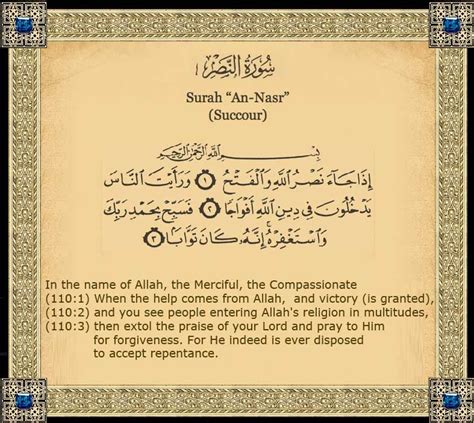 سُورَةُ النَّصْرِ
Surah “An-Nasr”
(Succour)
بِسْمِ اللَّهِ الرَّحْمَٰنِ الرَّحِيمِ
إِذَا جَاءَ نَصْرُ اللَّهِ وَالْفَتْحُ ١ وَرَأَيْتَ النَّاسَ
يَدْخُلُونَ فِي دِينِ اللَّهِ أَفْوَاجًا ٢ فَسَبِّحْ بِحَمْدِ رَبِّكَ
وَاسْتَغْفِرْهُ إِنَّهُ كَانَ تَوَّابًا ٣
In the name of Allah, the Merciful, the Compassionate
(110:1) When the help comes from Allah,  and victory (is granted),
(110:2) and you see people entering Allah's religion in multitudes,
(110:3) then extol the praise of your Lord and pray to Him
for forgiveness. For He indeed is ever disposed
to accept repentance.